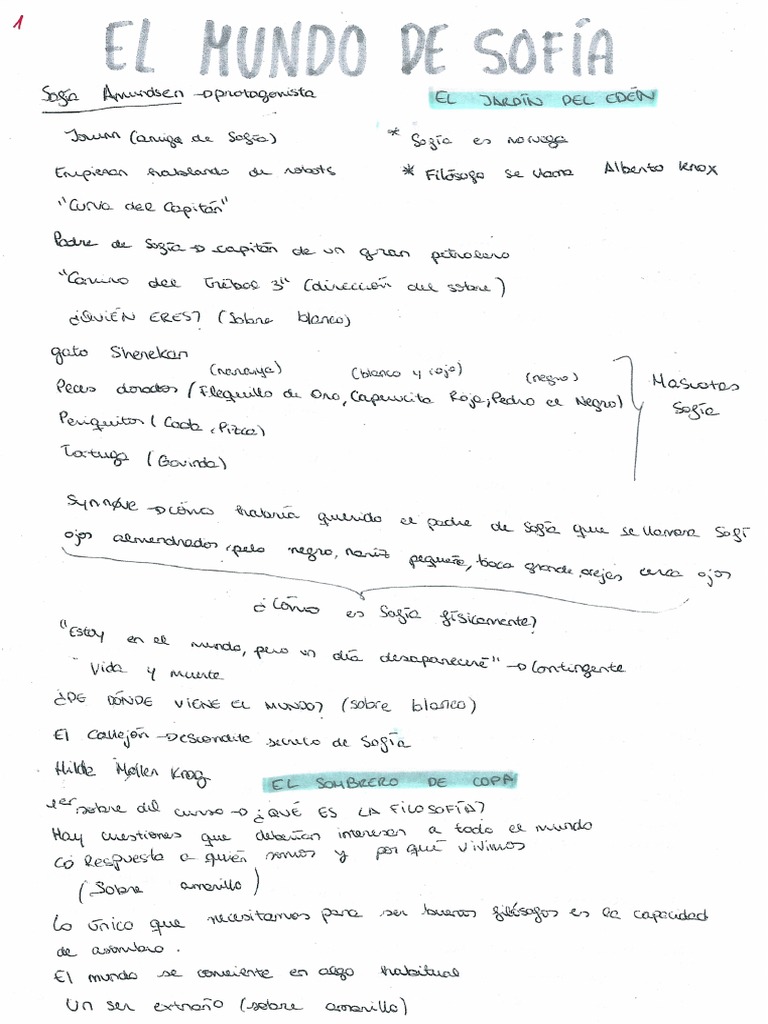 1
EL MUNDO DE SOFÍA
Sofía Amundsen → protagonista
EL JARDÍN DEL EDÉN
Jorunn (amiga de Sofía)
* Sofía es noruega
Empiezan hablando de robots
* Filósofo se llama Alberto Knox
"Curva del Capitán"
Padre de Sofía → capitán de un gran petrolero
"Camino del Trébol 3" (dirección del sobre)
¿QUIÉN ERES? (Sobre blanco)
gato Sherekan
(naranja) (blanco y rojo) (negro)
Peces dorados (Flequillo de Oro, Caperucita Roja, Pedro el Negro)
Mascotas
Sofía
Periquitos (Cada, Pizca)
Tortuga (Govinda)
Synnøve → cómo habría querido el padre de Sofía que se llamara Sofí
ojos almendrados, pelo negro, nariz pequeña, boca grande, orejas cerca ojos
¿Cómo es Sofía físicamente?
"Estoy en el mundo, pero un día desapareceré" → Contingente
Vida y muerte
¿DE DÓNDE VIENE EL MUNDO? (sobre blanco)
El Callejón → escondite secreto de Sofía
Hilde Møller Knag
EL SOMBRERO DE COPA
1er sobre del curso → ¿QUÉ ES LA FILOSOFÍA?
Hay cuestiones que deberían interesar a todo el mundo
Respuesta a quién somos y por qué vivimos
(Sobre amarillo)
Lo único que necesitamos para ser buenos filósofos es la capacidad
de asombro.
El mundo se convierte en algo habitual
Un ser extraño (sobre amarillo)